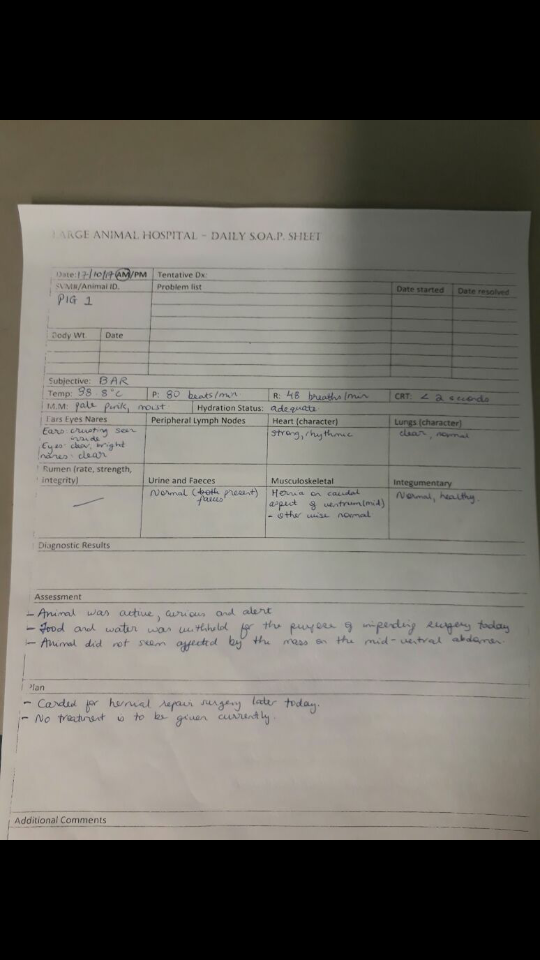 LARGE ANIMAL HOSPITAL – DAILY S.O.A.P. SHEET
Date: 17/10/17 AM/PM Tentative Dx:
SVM#/Animal ID. Problem list Date started Date resolved
PIG 1
Body Wt. Date
Subjective: BAR
Temp: 98.8°C P: 80 beats/min R: 48 breaths/min CRT: < 2 seconds
M.M: pale pink, moist Hydration Status: adequate
Ears Eyes Nares Peripheral Lymph Nodes Heart (character) Lungs (character)
Ears: crusting seen strong, rhythmic clear, normal
inside
Eyes: clear, bright
nares: clear
Rumen (rate, strength,
integrity) Urine and Faeces Musculoskeletal Integumentary
Normal (both present) Hernia on caudal Normal, healthy
faeces aspect of ventrum (mid)
- other wise normal
Diagnostic Results
Assessment
- Animal was active, curious and alert
- Food and water was withheld for the purpose of impending surgery today
- Animal did not seem affected by the mass on the mid-ventral abdomen
Plan
- Carded for hernial repair surgery later today.
- No treatment is to be given currently.
Additional Comments